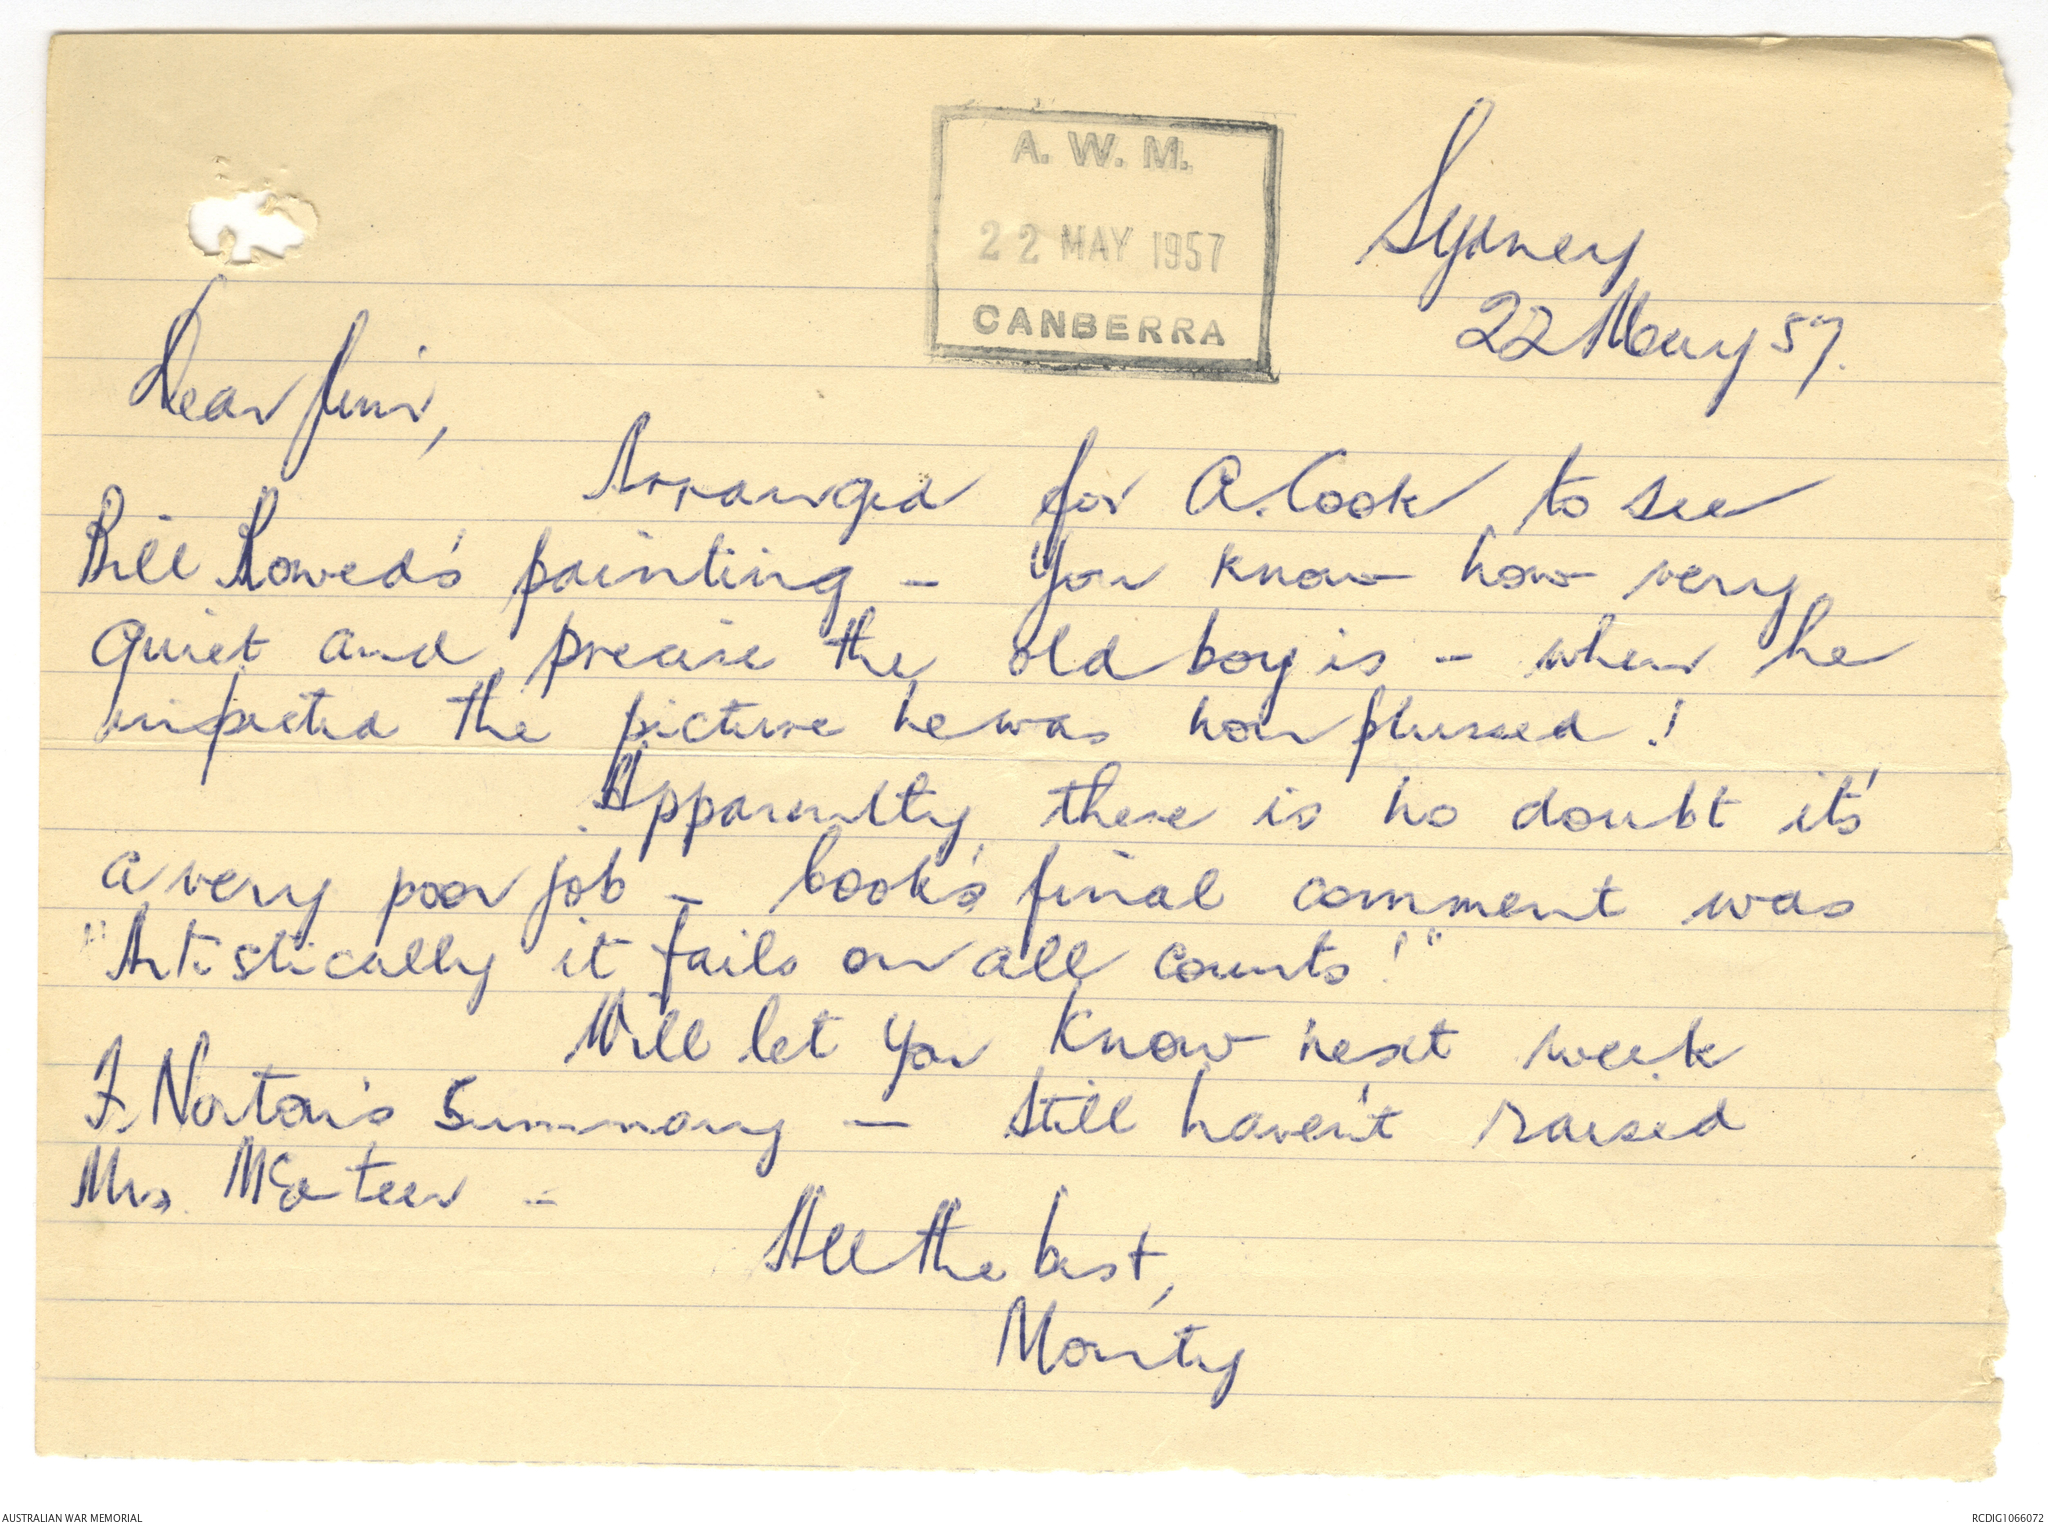 A. W. M.
22 MAY 1957
CANBERRA
Sydney
22 May 57.
Dear Jim,
Arranged for A. Cook to see
Bill painting - You know how very
quiet and precise the old boy is - when he
inspected the picture he was non plussed!
Apparently there is no doubt it's
a very poor job - Cook's final comment was
"Artistically it fails on all counts!"
Will let you know next week
F. Norton's Summary - Still haven't raised
Mrs. -
All the best,
Monty
AUSTRALIAN WAR MEMORIAL
RCDIG1066072